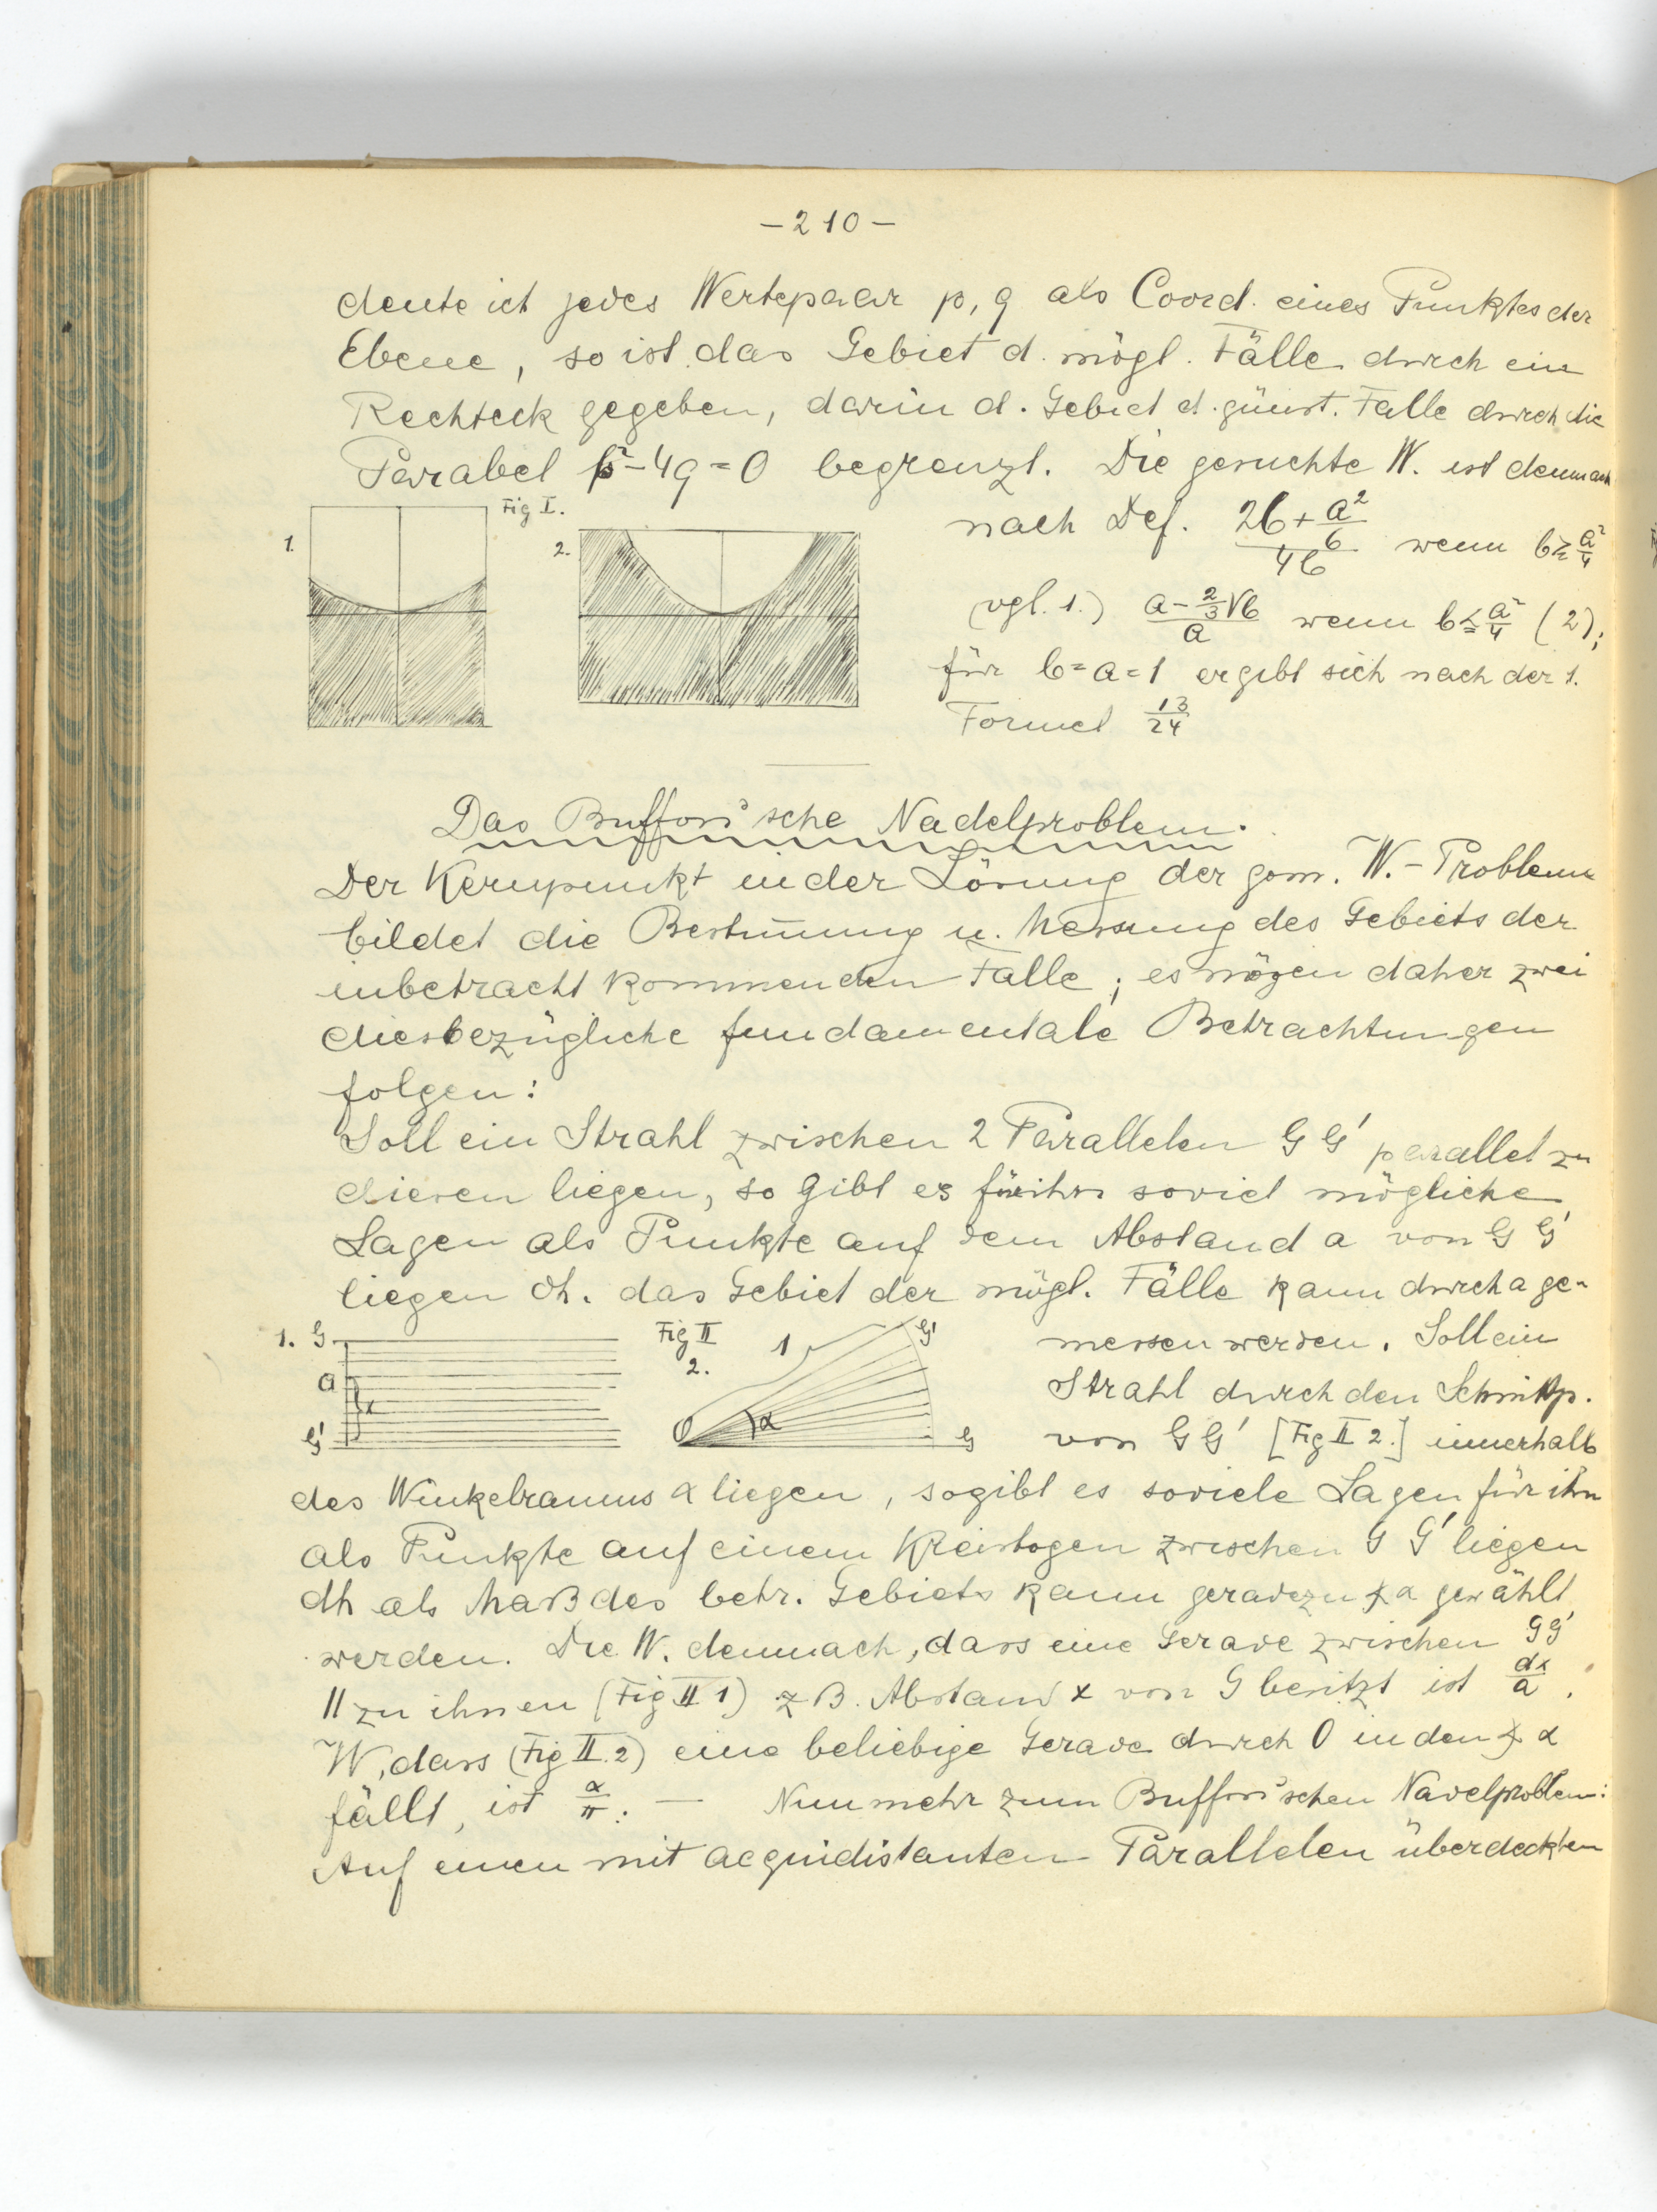 -210-
deute ich jedes Wertepaar p, q als Coord. eines Punktes der
Ebene, so ist das Gebiet d. mögl. Fälle durch ein
Rechteck gegeben, darin d. Gebiet d. günst. Fälle durch die
Parabel p²-4q=0 begrenzt. Die gesuchte W. ist demnach
Fig I.
1.
2.
nach Def. (2b+a²/6)/4b wenn b≧a²/4
(vgl. 1.) (a-2/3√b)/a wenn b≦a²/4 (2);
für b=a=1 ergibt sich nach der 1.
Formel 13/24
Das Buffon'sche Nadelproblem.
Der Kernpunkt in der Lösung der gom. W.-Probleme
bildet die Bestim̅ung u. Messung des Gebiets der
inbetracht kommenden Fälle; es mögen daher zwei
diesbezügliche fundamentale Betrachtungen
folgen:
Soll ein Strahl zwischen 2 Parallelen G G' parallel zu
diesen liegen, so gibt es für ihn soviel mögliche
Lagen als Punkte auf dem Abstand a von G G'
liegen dh. das Gebiet der mögl. Fälle kann durch a ge-
1. G
a
x
G'
Fig II
2.
1
G'
O
α
G
messen werden. Soll ein
Strahl durch den Schnittp.
von G G' [Fig II 2.] innerhalb
des Winkelraums α liegen, so gibt es soviele Lagen für ihn
als Punkte auf einem Kreisbogen zwischen G G' liegen
dh als Maß des betr. Gebiets kann geradezu ∢α gewählt
werden. Die W. demnach, dass eine Gerade zwischen G G'
|| zu ihnen (Fig II 1) z B. Abstand x von G besitzt ist dx/a.
W, dass (Fig II. 2) eine beliebige Gerade durch O in den ∢ α
fällt, ist α/π. — Nunmehr zum Buffon'schen Nadelproblem:
Auf einen mit aequidistanten Parallelen überdeckten